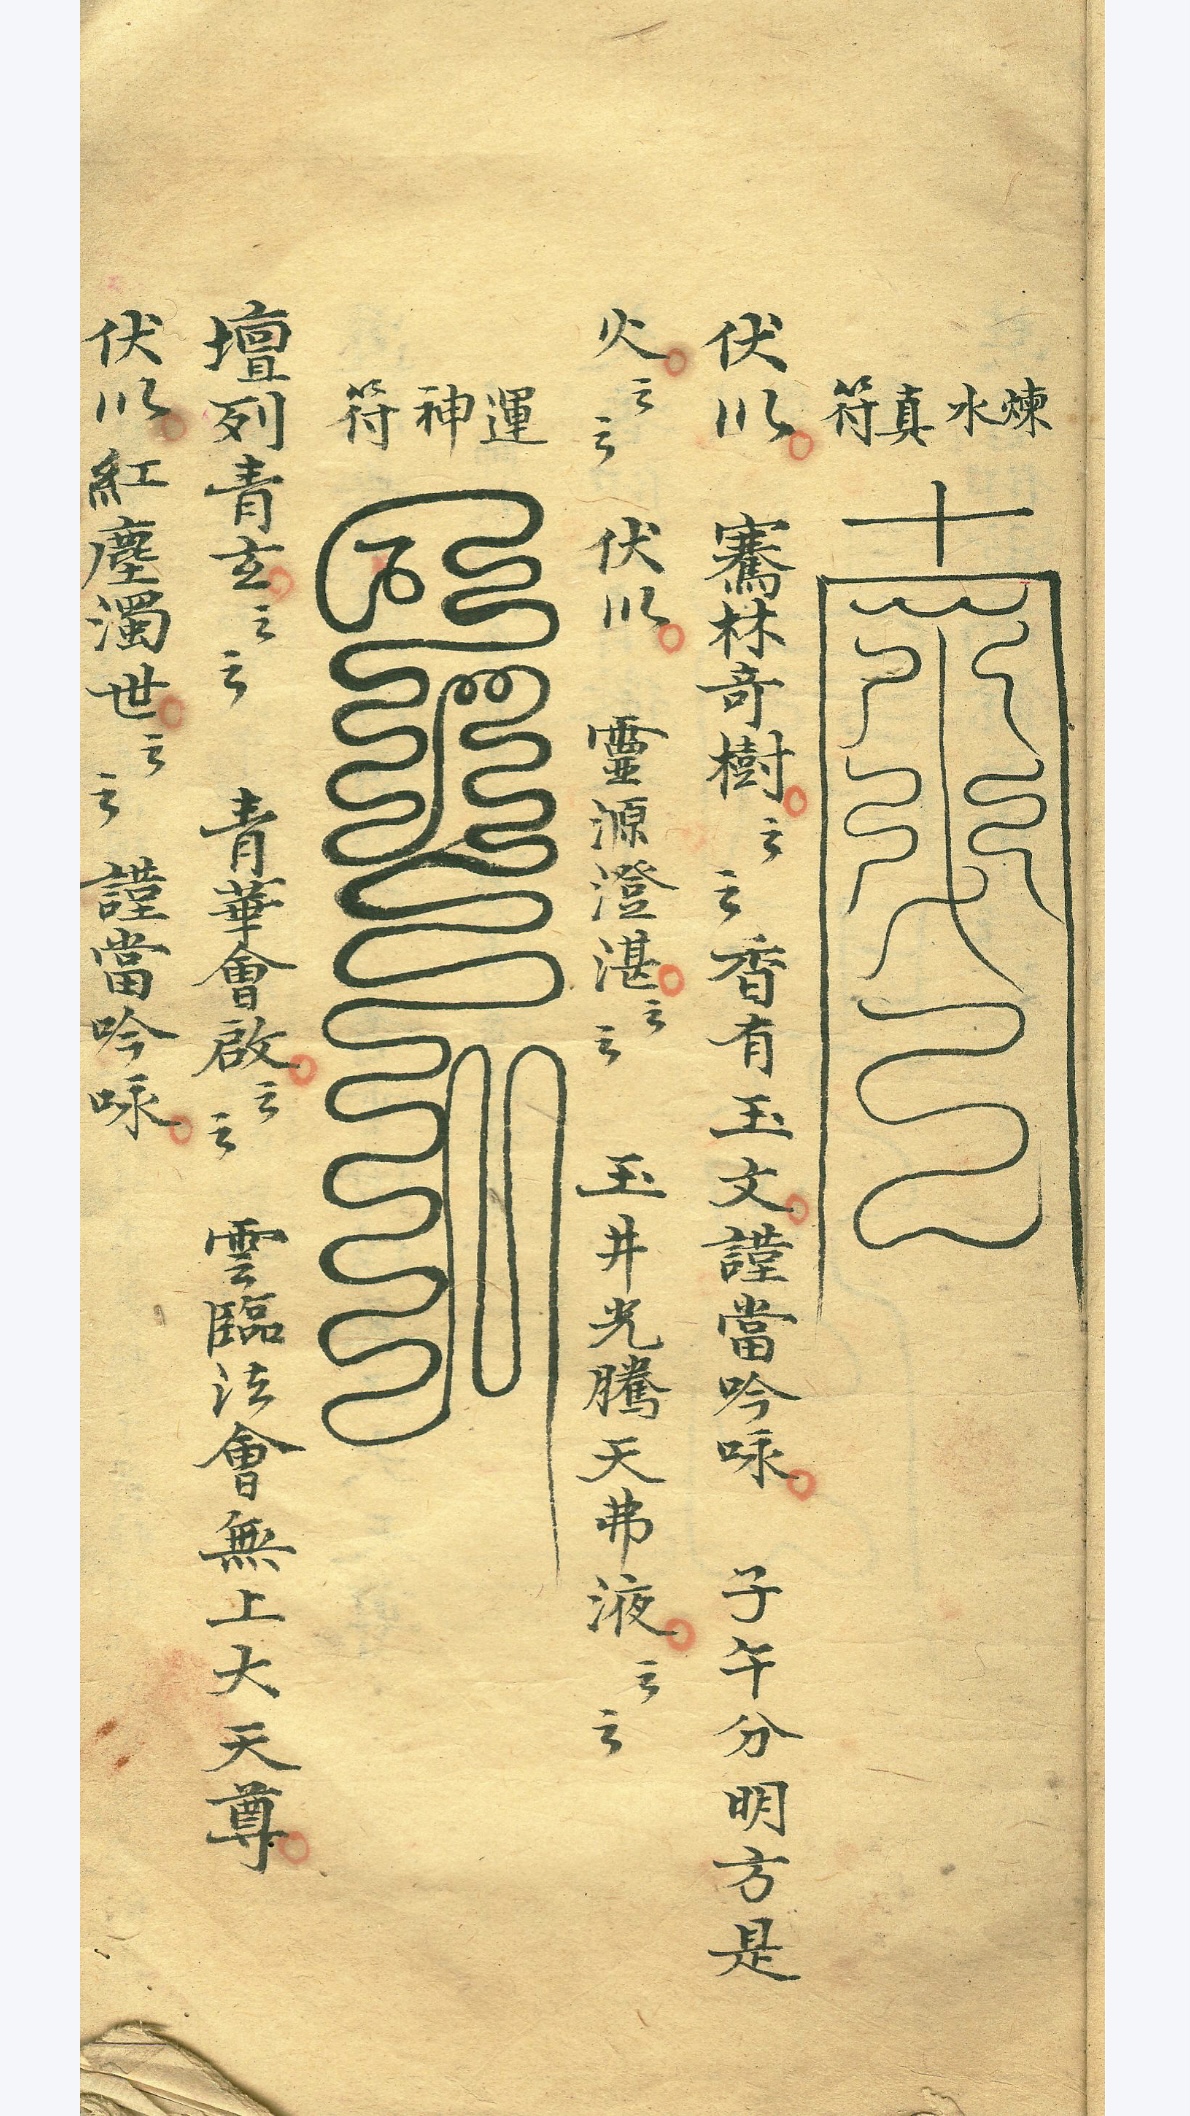 煉水真符
伏以騫林奇樹云云香有玉文謹當吟咏 子午分明方是
火云云 伏以 靈源澄湛云云 玉井光騰天弗液云云
運神符
壇列青玄云云 青華會啟云云 雲臨法會無上大天尊
伏以紅塵濁世云云 謹當吟咏